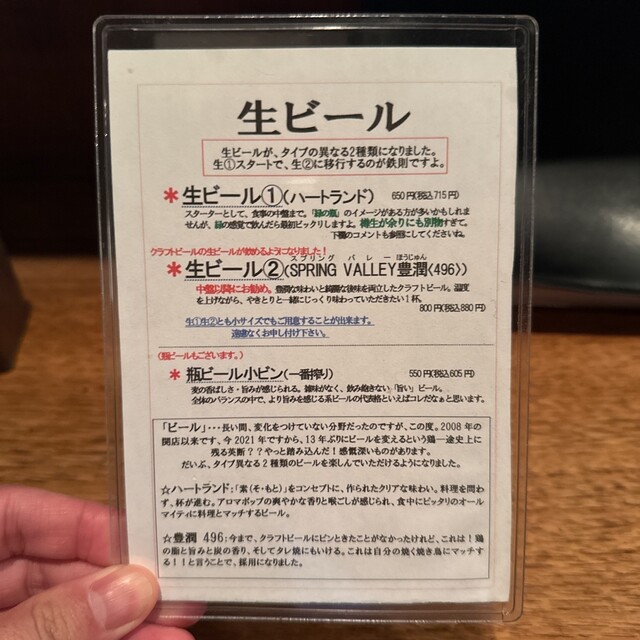 生ビール
生ビールが、タイプの異なる2種類になりました。
生①スタートで、生②に移行するのが鉄則ですよ。
*生ビール①(ハートランド) 650円(税込715円)
スターターとして、食事の中盤まで。「緑の瓶」のイメージがある方が多いかもしれま
せんが、緑の感覚で飲んだら最初ビックリしますよ。樽生が余りにも別物すぎて。
下欄のコメントも参照してくださいね。
クラフトビールの生ビールが飲めるようになりました!
スプリング バレー ほうじゅん
*生ビール②(SPRING VALLEY豊潤〈496〉)
中盤以降にお勧め。豊潤な味わいと綺麗な後味を両立したクラフトビール。温度
を上げながら、やきとりと一緒にじっくり味わっていただきたい1杯。
800円(税込880円)
生①生②とも小サイズでもご用意することが出来ます。
遠慮なくお申し付け下さい。
(瓶ビールもございます。)
*瓶ビール小ビン(一番搾り) 550円(税込605円)
麦の香ばしさ・旨みが感じられる。雑味がなく、飲み飽きない「旨い」ビール。
全体のバランスの中で、より旨みを感じる系ビールの代表格といえばコレだなぁと思います。
「ビール」・・・長い間、変化をつけていない分野だったのですが、この度。2008年の
開店以来です、今2021年ですから、13年ぶりにビールを変えるという鶏一途史上に
残る英断??やっと踏み込んだ!感慨深いものがあります。
だいぶ、タイプ異なる2種類のビールを楽しんでいただけるようになりました。
☆ハートランド:「素(そ・もと)」をコンセプトに、作られたクリアな味わい。料理を問わ
ず、杯が進む。アロマホップの爽やかな香りと喉ごしが感じられ、食中にピッタリのオール
マイティに料理とマッチするビール。
☆豊潤 496:今まで、クラフトビールにピンときたことがなかったけれど、これは!鶏
の脂と旨みと炭の香り、そしてタレ焼にもいける。これは自分の焼く焼き鳥にマッチす
る!!と言うことで、採用になりました。